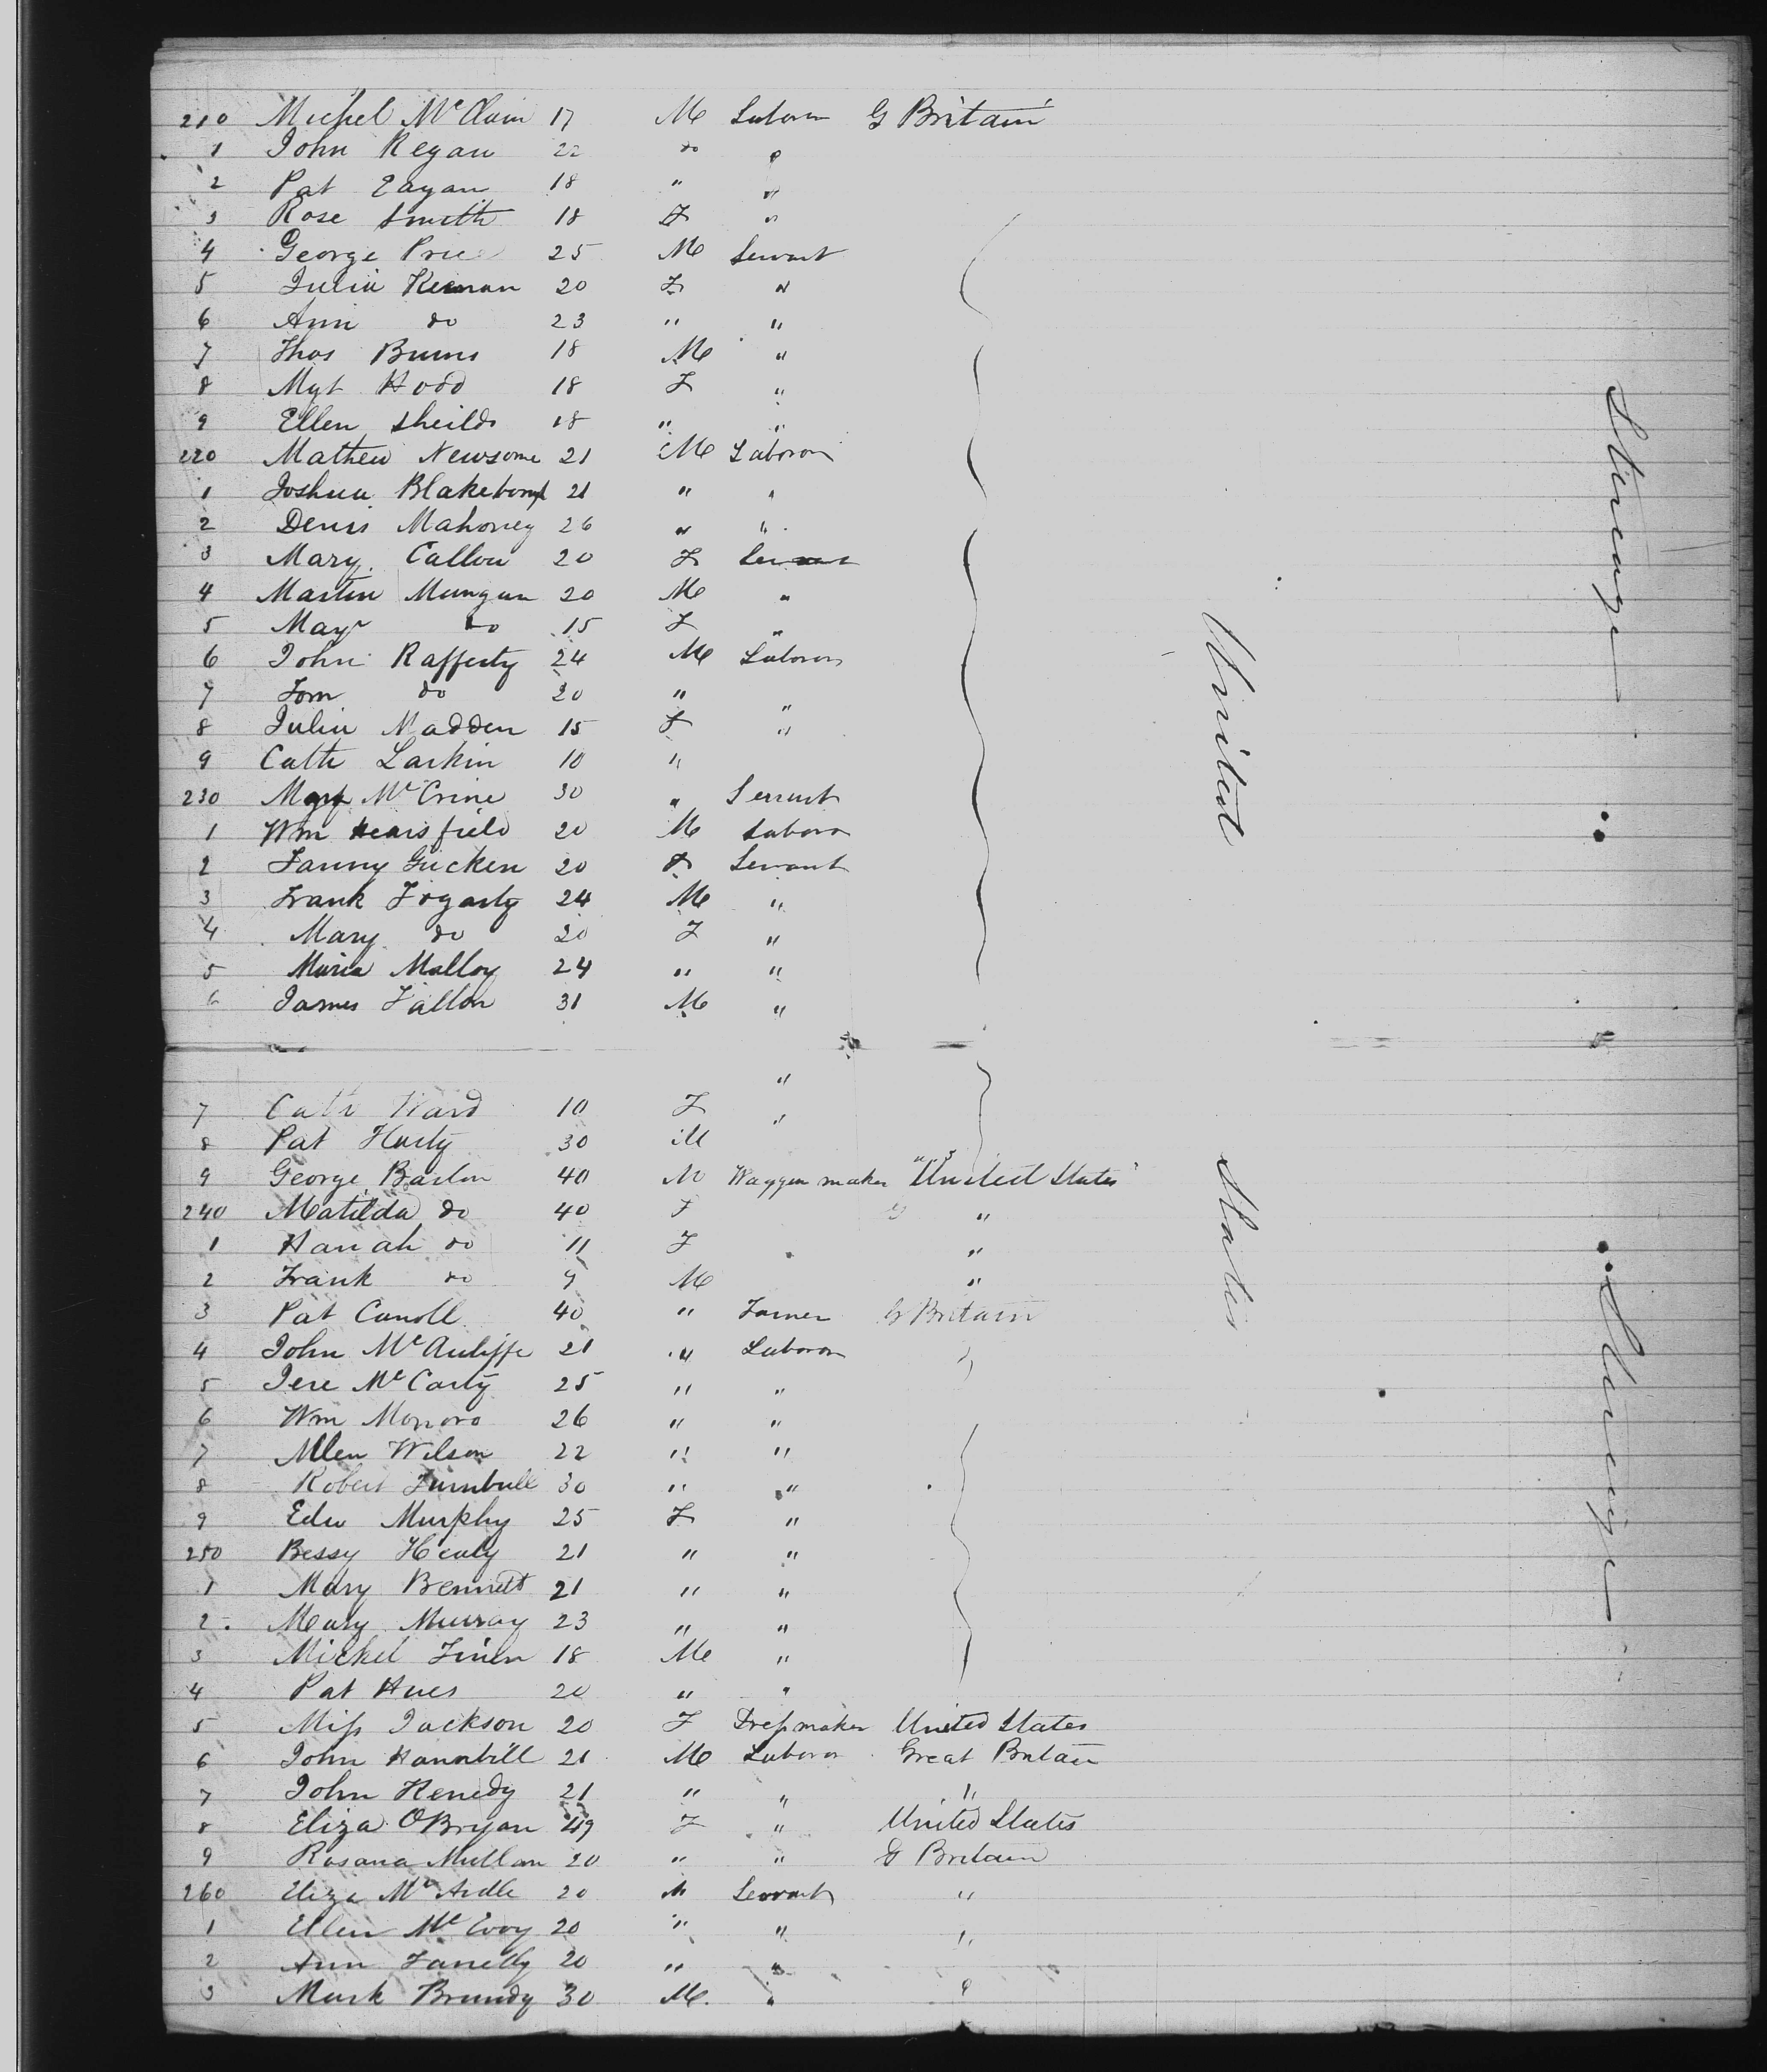 210 Michel McClain 17 M Laborer G Britain
1 John Regan 22 do "
2 Pat Eagan 18 " "
3 Rose Smith 18 F "
4 George Price 25 M Servant
5 Julia Keenan 20 F "
6 Ann do 23 " "
7 Thos Burns 18 M "
8 Mgt Hood 18 F "
9 Ellen Sheilds 18 " "
220 Mathew Newsome 21 M Laboror
1 Joshua 21 " "
2 Denis Mahoney 26 " "
3 Mary Callon 20 F Servant
4 Martin Mungan 20 M "
5 Mary do 15 F "
6 John Rafferty 24 M Laboror
7 Tom do 20 " "
8 Julia Madden 15 F "
9 Cath Larkin 10 "
230 Mgt McCrine 30 " Servant
1 Wm Hearsfield 20 M Labor
2 Fanny Gucken 20 F Servant
3 Frank Fogarty 24 M "
4 Mary do 20 F "
5 Maria Malloy 24 " "
6 James Fallon 31 M "
"
7 Cath Ward 10 F "
8 Pat Harty 30 M
9 George Barlon 40 M Waggon maker "United States"
240 Matilda do 40 F "
1 Hanah do 11 F "
2 Frank do 9 M "
3 Pat Carroll 40 " Farmer G Britain
4 John McAuliffe 21 " Laboror "
5 Jere McCarty 25 " "
6 Wm Monoro 26 " "
7 Allen Wilson 22 " "
8 Robert Turnbull 30 " "
9 Edw Murphy 25 F "
250 Bessy Healy 21 " "
1 Mary Bennett 21 " "
2 Mary Murray 23 " "
3 Mickel Finen 18 M "
4 Pat Hues 20 " "
5 Miss Jackson 20 F Dressmaker United States
6 John Hannbill 21 M Laboror Great Britain
7 John Kenedy 21 " " "
8 Eliza OBryan 49 F " United States
9 Rosana Mullan 20 " " G Britain
260 Eliza McArdle 20 " Servant "
1 Ellen McEvoy 20 " " "
2 Ann Farrelly 20 " "
3 Mark Brundy 30 M. " "
United States
Steerage
Steerage